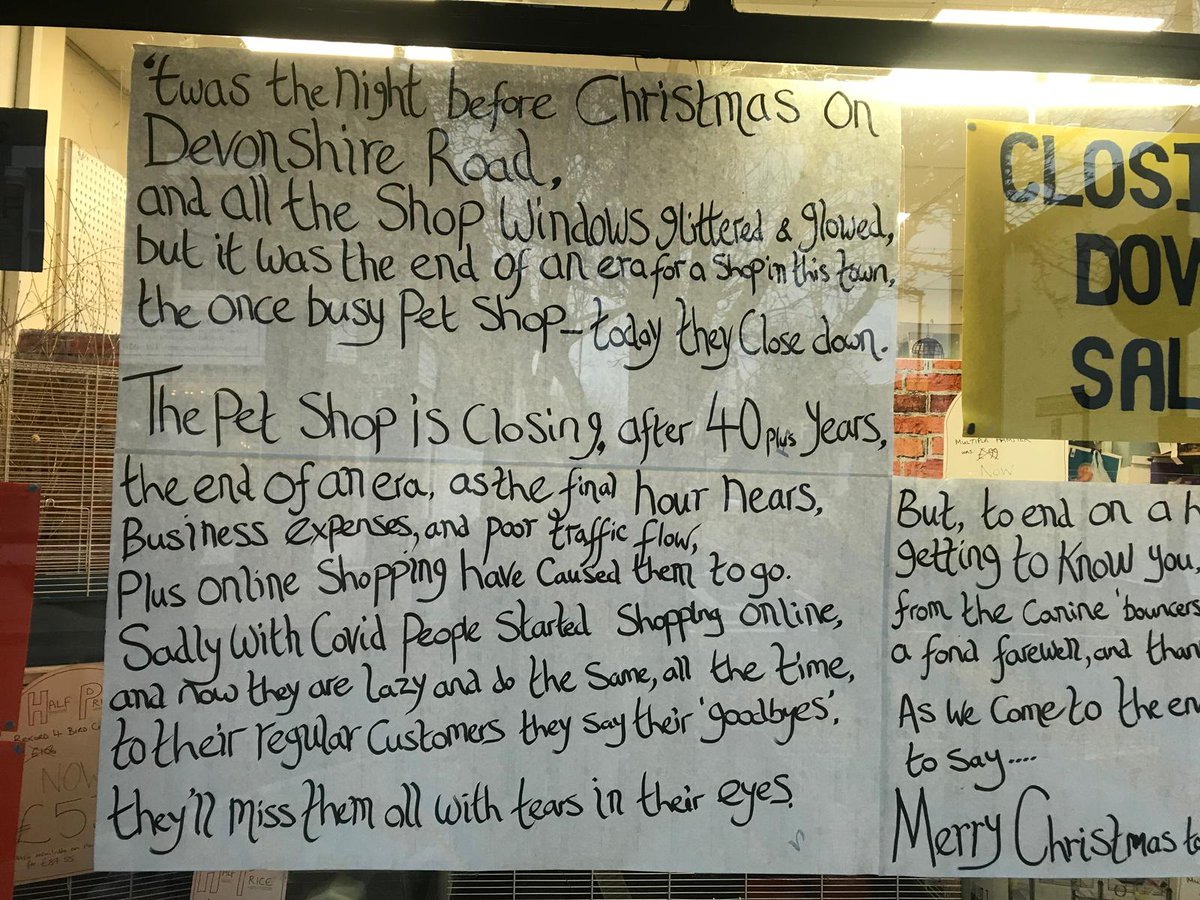 'twas the night before Christmas on
Devonshire Road,
and all the Shop Windows glittered & glowed,
but it was the end of an era for a Shop in this town,
the once busy Pet Shop - today they Close down.
The Pet Shop is Closing, after 40 plus years,
the end of an era, as the final hour nears,
Business expenses, and poor traffic flow,
Plus online Shopping have Caused them to go.
Sadly With Covid People Started Shopping Online,
and now they are Lazy and do the Same, all the time,
to their regular Customers they say their 'goodbyes',
they'll miss them all with tears in their eyes.
CLOSI
DOV
SAL
MULTIPLE HAMSTER
WAS
NOW
But, to end on a h
getting to Know you,
from the Canine 'bouncers
a fond farewell, and than
As We Come to the en
to say....
Merry Christmas to
HALF PRICE
4 BIRD
NOW
£5
HALF PRICE